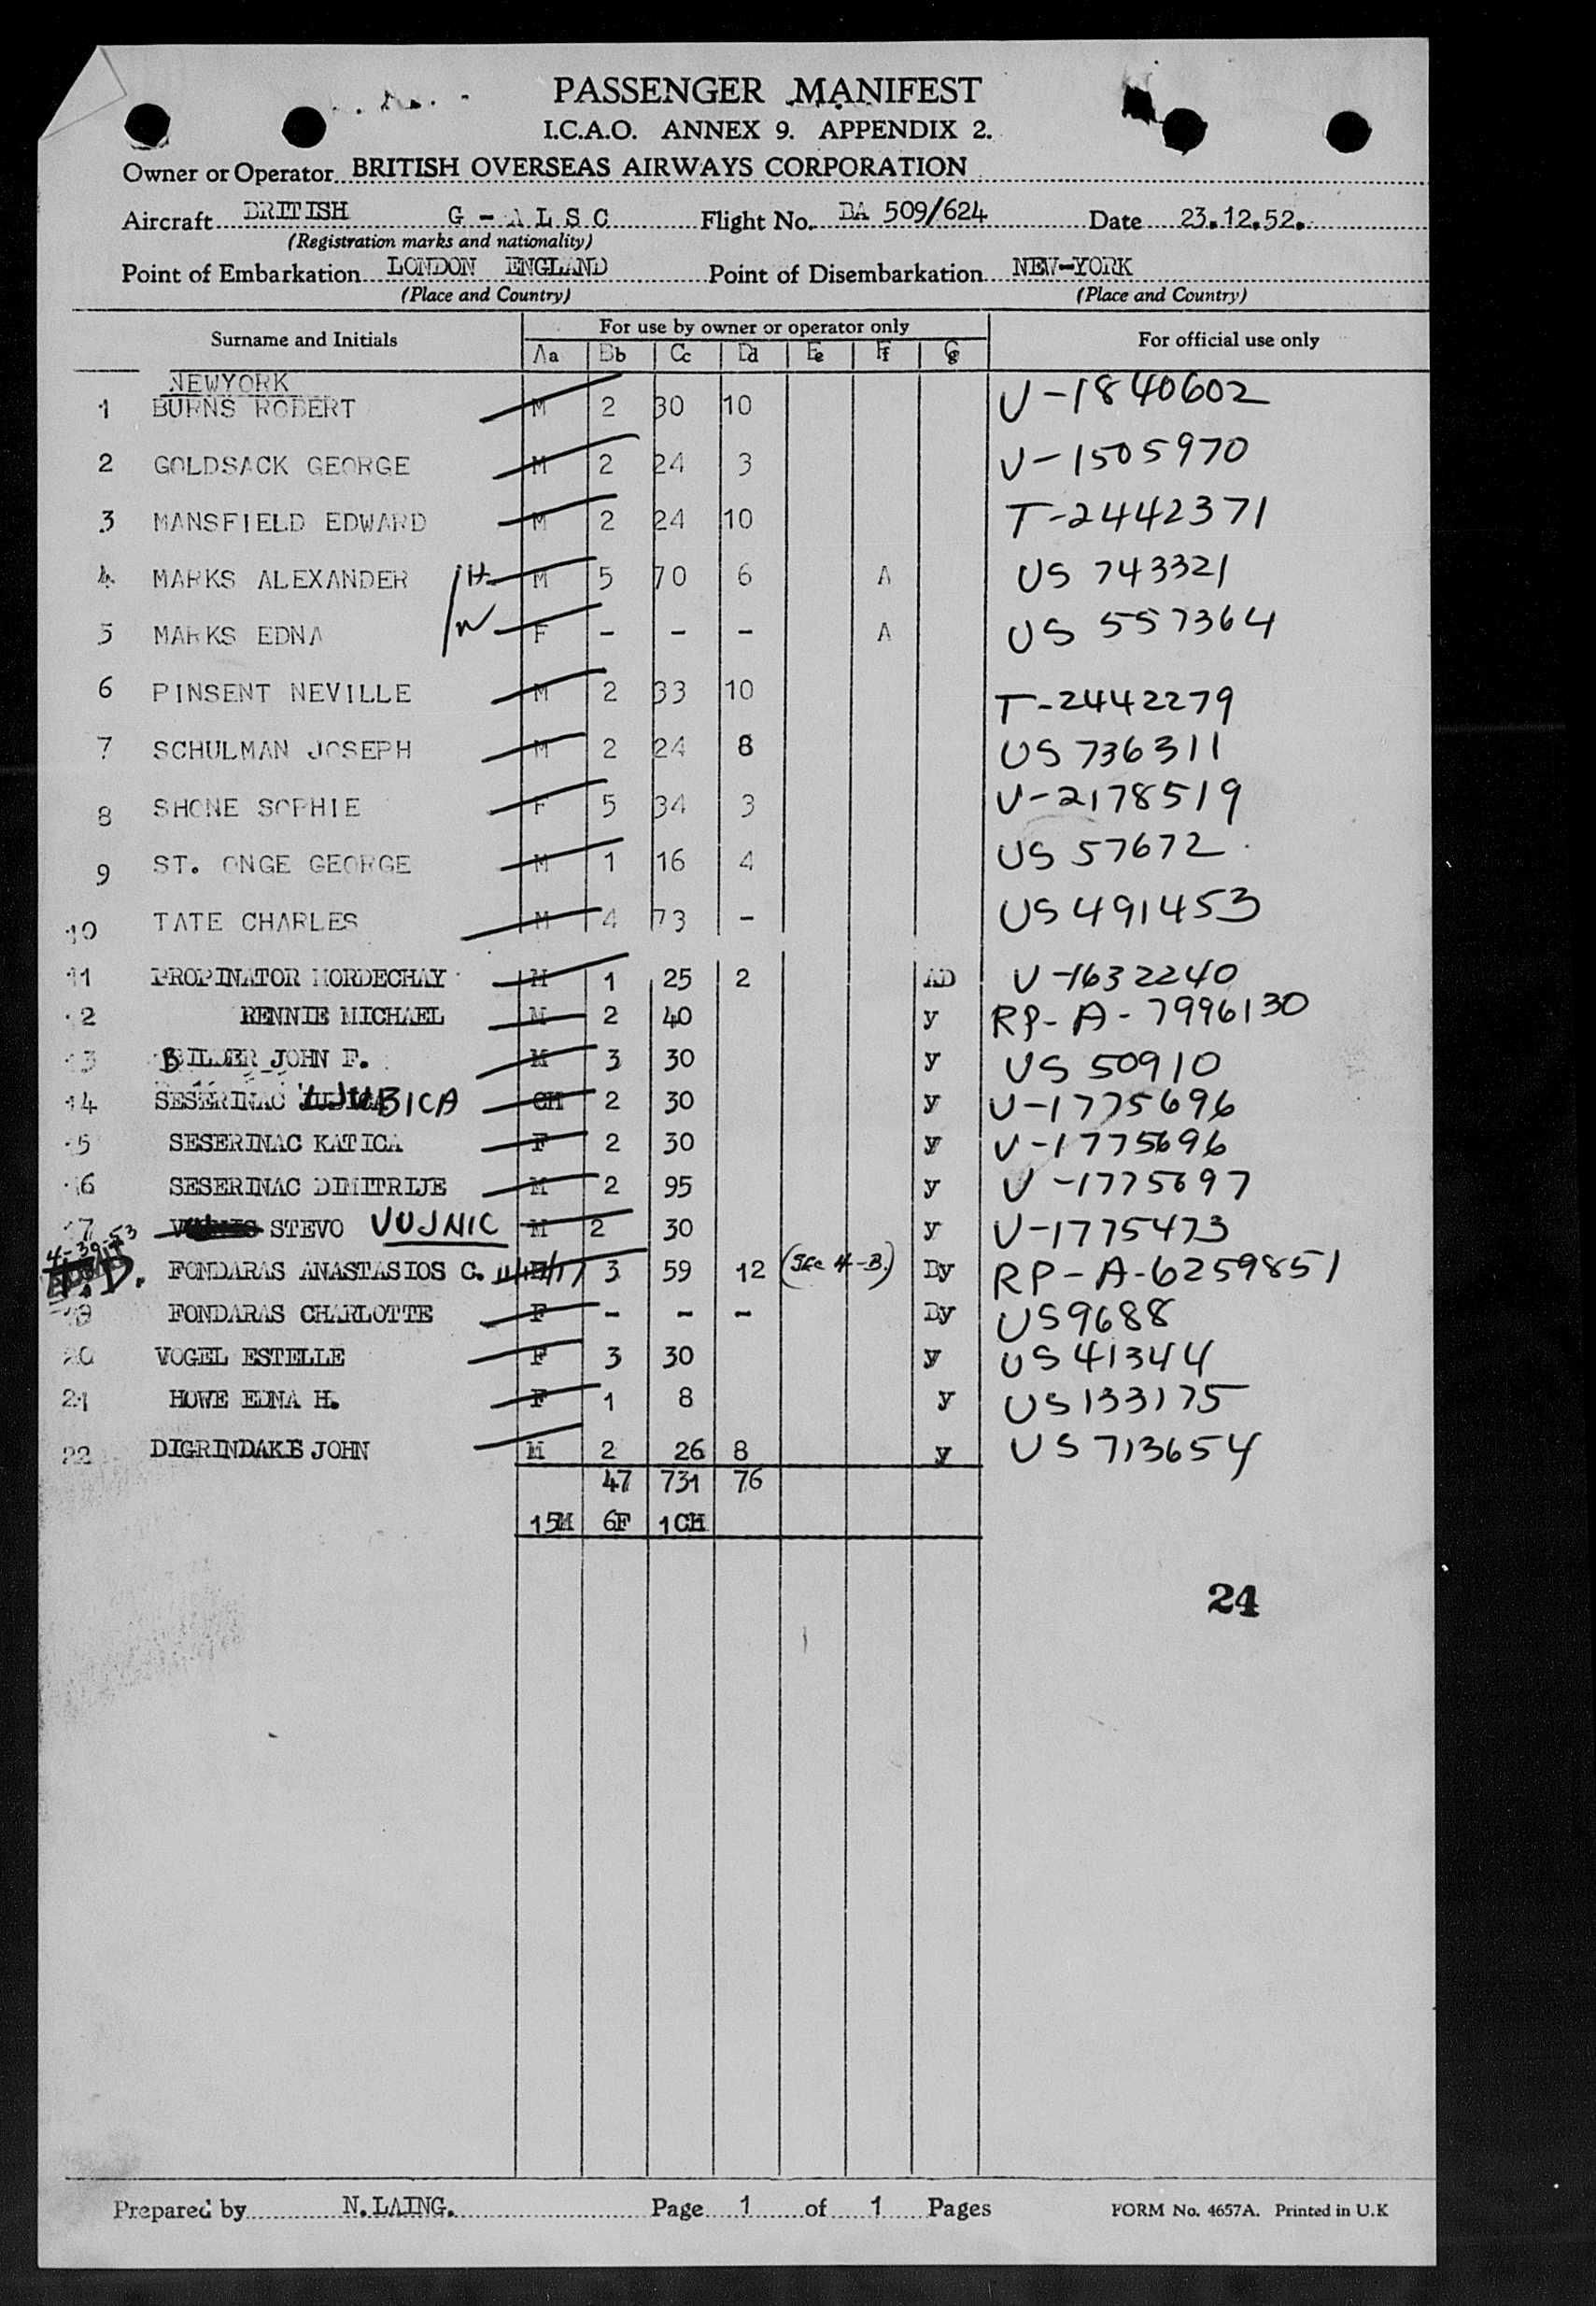 PASSENGER MANIFEST
I.C.A.O. ANNEX 9. APPENDIX 2.
Owner or Operator BRITISH OVERSEAS AIRWAYS CORPORATION
Aircraft BRITISH G - A L S C Flight No. BA 509/624 Date 23.12.52.
(Registration marks and nationality)
Point of Embarkation LONDON ENGLAND Point of Disembarkation NEW-YORK
(Place and Country) (Place and Country)
Surname and Initials For use by owner or operator only For official use only
Aa Bb Cc Dd Ee Ff Gg
NEWYORK
1 BURNS ROBERT M 2 30 10 V-1840602
2 GOLDSACK GEORGE M 2 24 3 V-1505970
3 MANSFIELD EDWARD M 2 24 10 T-2442371
4 MARKS ALEXANDER H M 5 70 6 A US 743321
5 MARKS EDNA W F - - - A US 557364
6 PINSENT NEVILLE M 2 33 10 T-2442279
7 SCHULMAN JOSEPH M 2 24 8 US 736311
8 SHONE SOPHIE F 5 34 3 V-2178519
9 ST. ONGE GEORGE M 1 16 4 US 57672
10 TATE CHARLES M 4 73 - US 491453
11 PROPINATOR MORDECHAY M 1 25 2 AD V-1632240
12 RENNIE MICHAEL M 2 40 y RP-A-7996130
13 BILDER JOHN F. M 3 30 y US 50910
14 SESERINAC LJUBICA CH 2 30 y V-1775696
15 SESERINAC KATICA F 2 30 y V-1775696
16 SESERINAC DIMITRIJE M 2 95 y V-1775697
17 STEVO VUJNIC M 2 30 y V-1775473
4-30-53
FONDARAS ANASTASIOS C. M 3 59 12 (See 4-B.) By RP-A-6259851
19 FONDARAS CHARLOTTE F - - - By US 9688
20 VOGEL ESTELLE F 3 30 y US 41344
21 HOWE EDNA H. F 1 8 y US 133175
22 DIGRINDAKIS JOHN M 2 26 8 y US 713654
47 731 76
15M 6F 1CH
24
Prepared by N.LAING. Page 1 of 1 Pages FORM No. 4657A. Printed in U.K